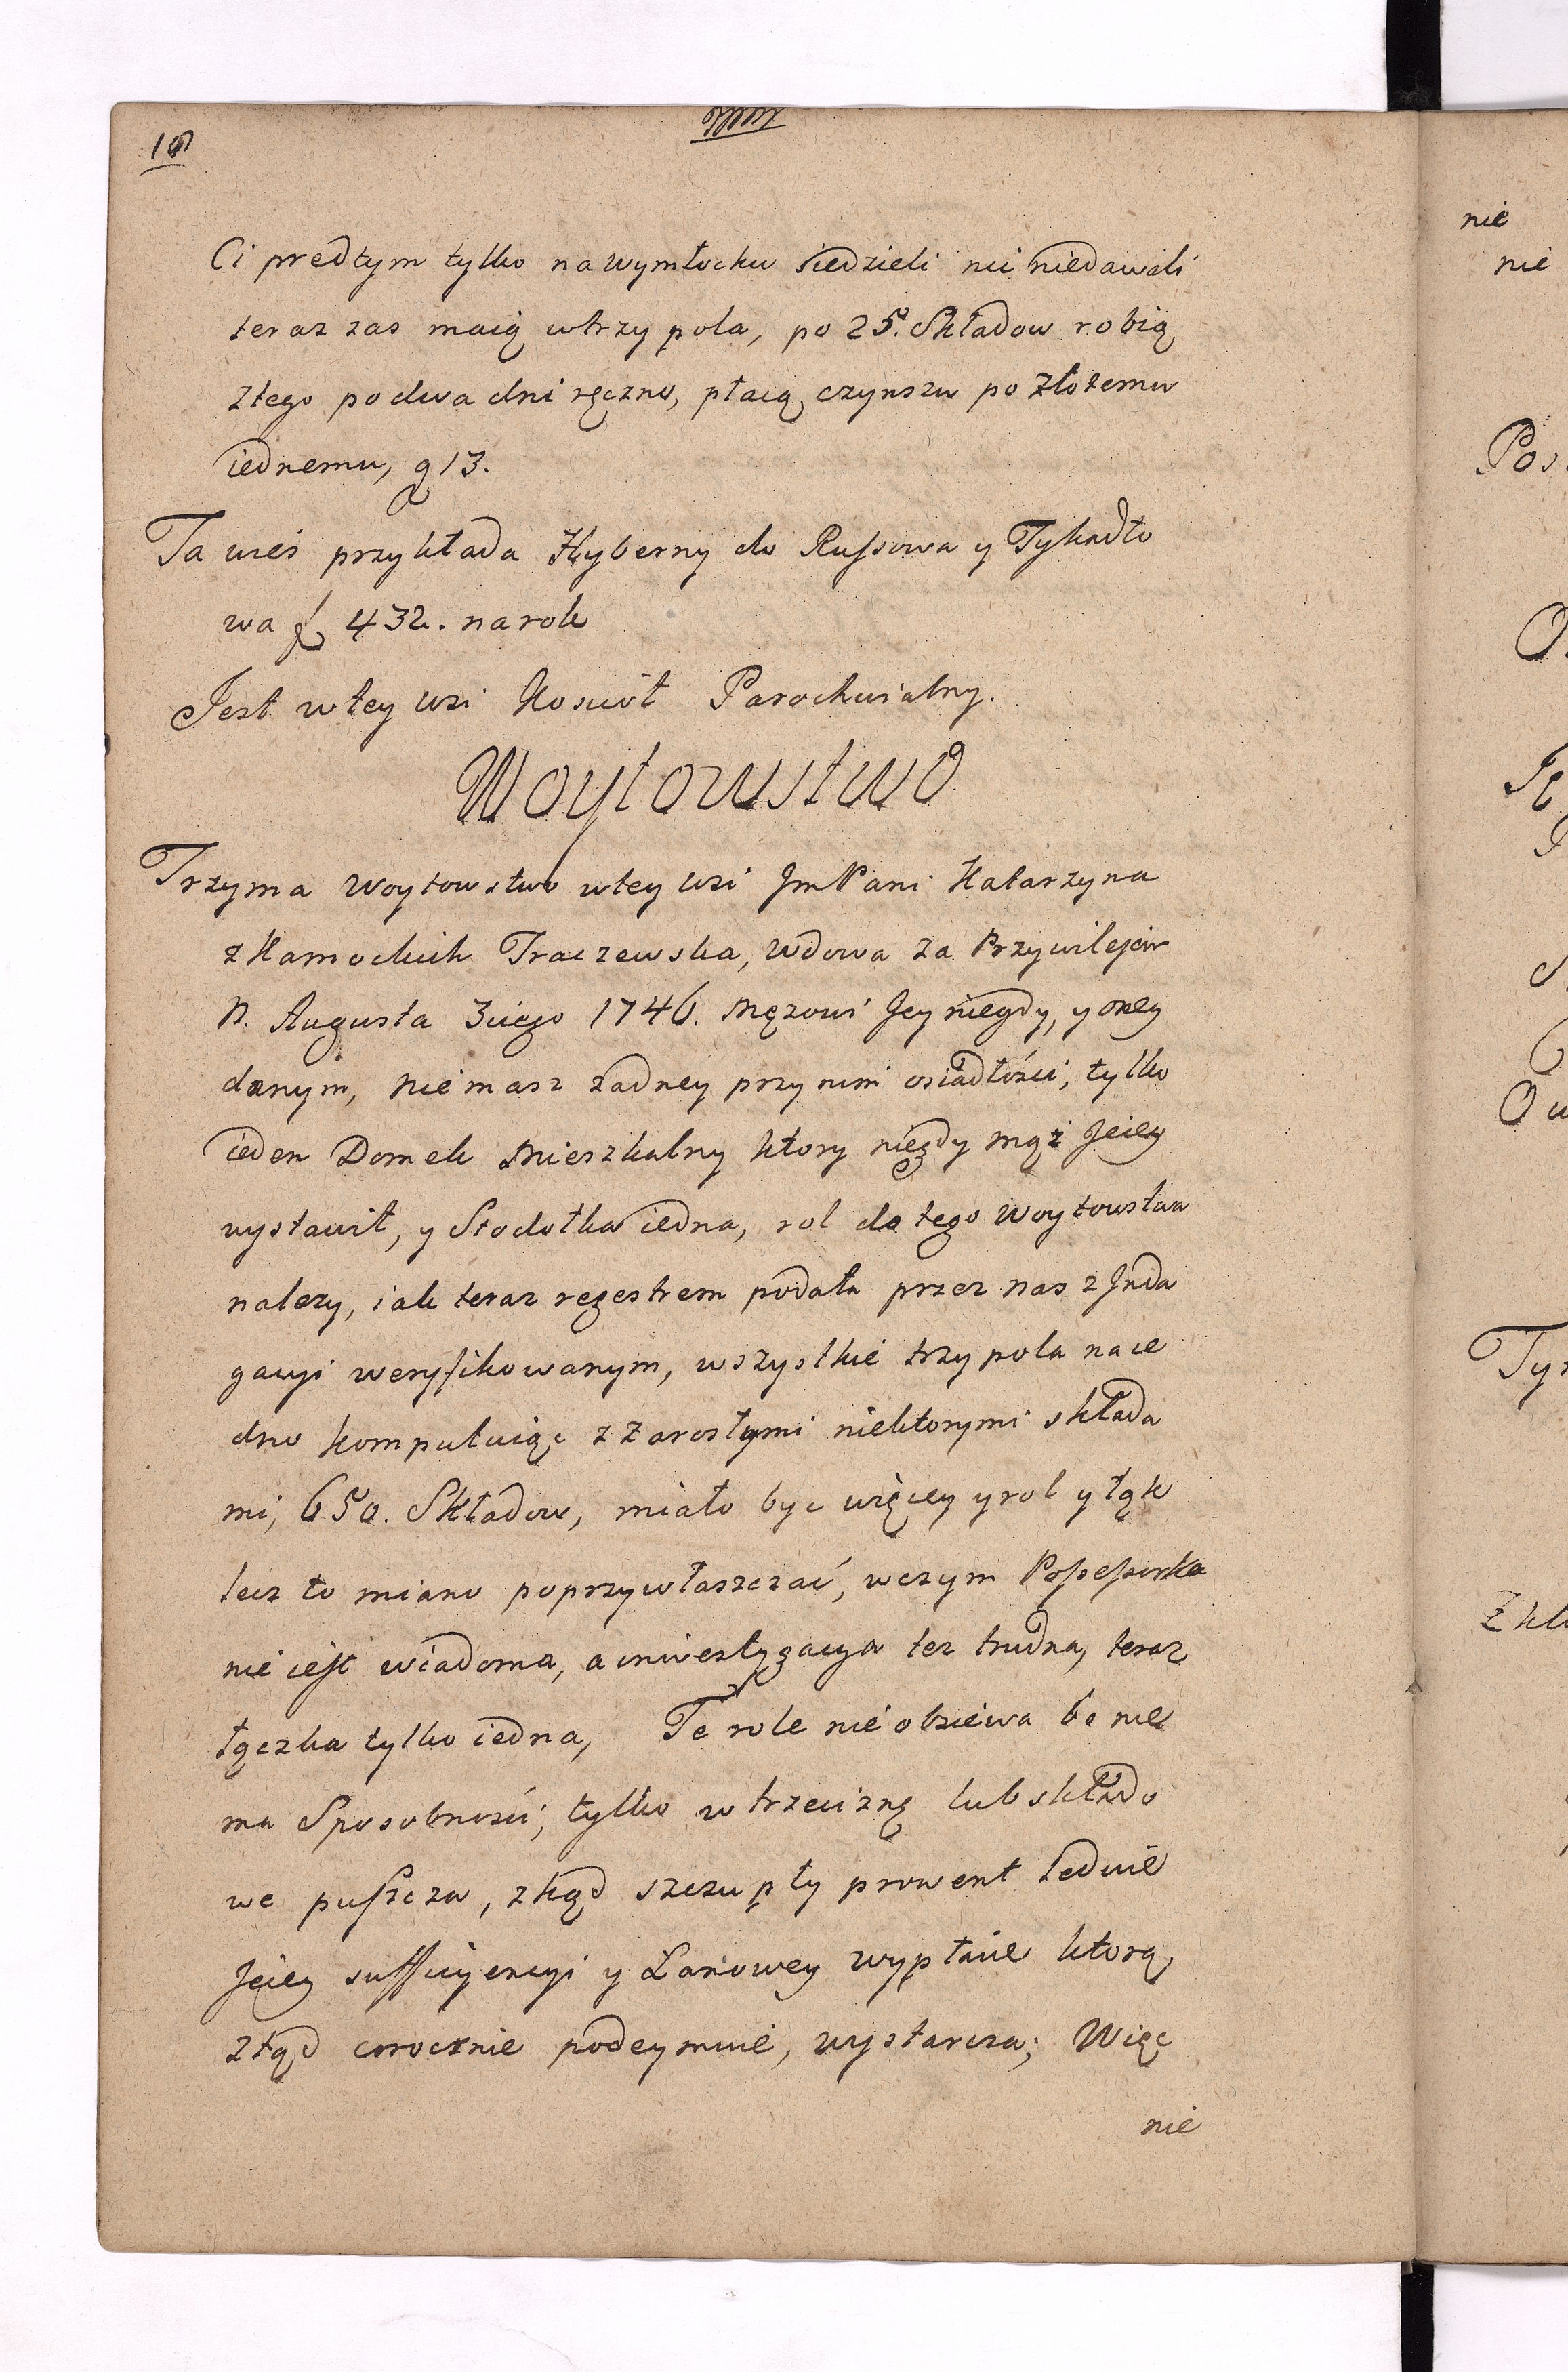 Ci predtym tylko na wymłocku siedzieli nic niedawali
teraz zas maią wtrzy pola, po 25. Składow robią
ztego po dwa dni ręczno, płacą czynszu po Złotemu
iednemu, g 13.
Ta wies przykłada Hyberny do Russowa y Tykadło
wa f 432. na rok
Jest wtey wsi Kosciół Parochwialny.
Woytowstwo
Trzyma Woytowstwo wtey wsi JmPani Katarzyna
z Kamockich Traczewska, wdowa za Przywilejem
N. Augusta 3ciego 1746. Mężowi Jey niegdy, y oney
danym, Niemasz żadney przynim osiadłości, tylko
ieden Domek Mieszkalny ktory niegdy mąż Jeiey
wystawił, y Stodołka iedna, rol do tego Woytowstwa
nalezy, iak teraz regestrem podała przez nas z Jnda
gacyi weryfikowanym, wszystkie trzy pola na ie
dno komputuiąc z Zarosłymi niektorymi składa
mi, 650. Składow, miało byc więcey y rol y łąk
lecz to miano poprzywłaszczać, wczym Possessorka
nie iest wiadoma, a inwestygacya tez trudna, teraz
łączka tylko iedna, Te role nie obsiewa bo nie
ma Sposobności, tylko w trzeciznę lub składo
we puszcza, zkąd szczupły prowent Ledwie
Jeiey sufficyencyi y Łanowey wypłacie ktorą
ztąd corocznie podeymuie, wystarcza; Więc
nie
nie
nie
Tyn